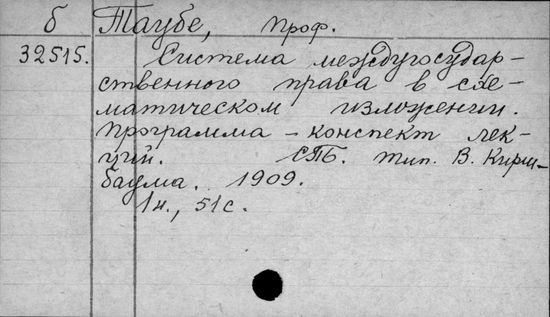 б Таубе, проф.
32515. Система междугосудар-
ственного права в схе-
матическом изложении.
Программа - конспект лек-
ций. СПБ. тип. В. Кирш-
баума. 1909.
1н., 51с.